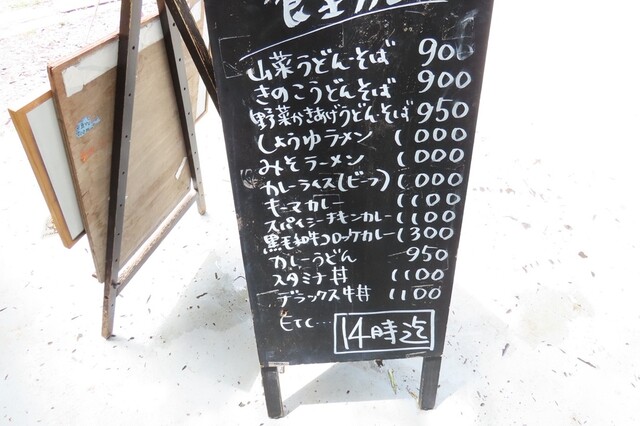 山菜うどん・そば 900
きのこうどんそば 900
野菜かきあげうどん・そば 950
しょうゆラーメン 1000
みそラーメン 1000
カレーライス(ビーフ) 1000
キーマカレー 1100
スパイシーチキンカレー 1100
黒毛和牛コロッケカレー 1300
カレーうどん 950
スタミナ丼 1100
デラックス牛丼 1100
ETC…
14時迄